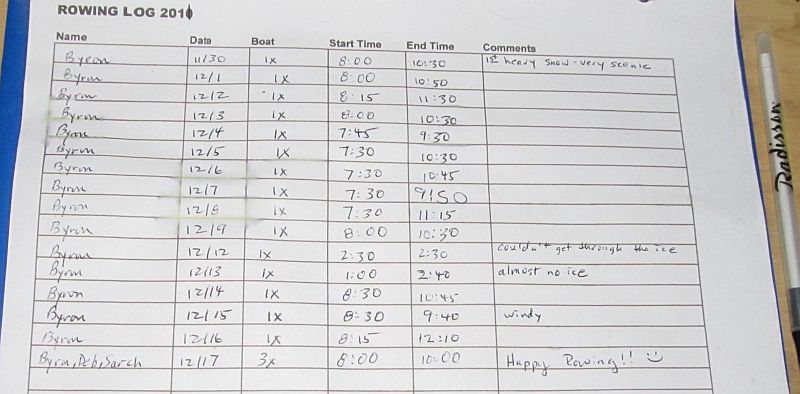 ROWING LOG 2010
Name Date Boat Start Time End Time Comments
Byron 11/30 1x 8:00 10:30 1st heavy snow - very scenic
Byron 12/1 1x 8:00 10:50
Byron 12/2 1x 8:15 11:30
Byron 12/3 1x 8:00 10:30
Byron 12/4 1x 7:45 9:30
Byron 12/5 1x 7:30 10:30
Byron 12/6 1x 7:30 10:45
Byron 12/7 1x 7:30 9:50
Byron 12/8 1x 7:30 11:15
Byron 12/9 1x 8:00 10:30
Byron 12/12 1x 2:30 2:30 couldn't get through the ice
Byron 12/13 1x 1:00 2:40 almost no ice
Byron 12/14 1x 8:30 10:45
Byron 12/15 1x 8:30 9:40 windy
Byron 12/16 1x 8:15 12:10
Byron, Deb, Sarah 12/17 3x 8:00 10:00 Happy Rowing!!
Radisson